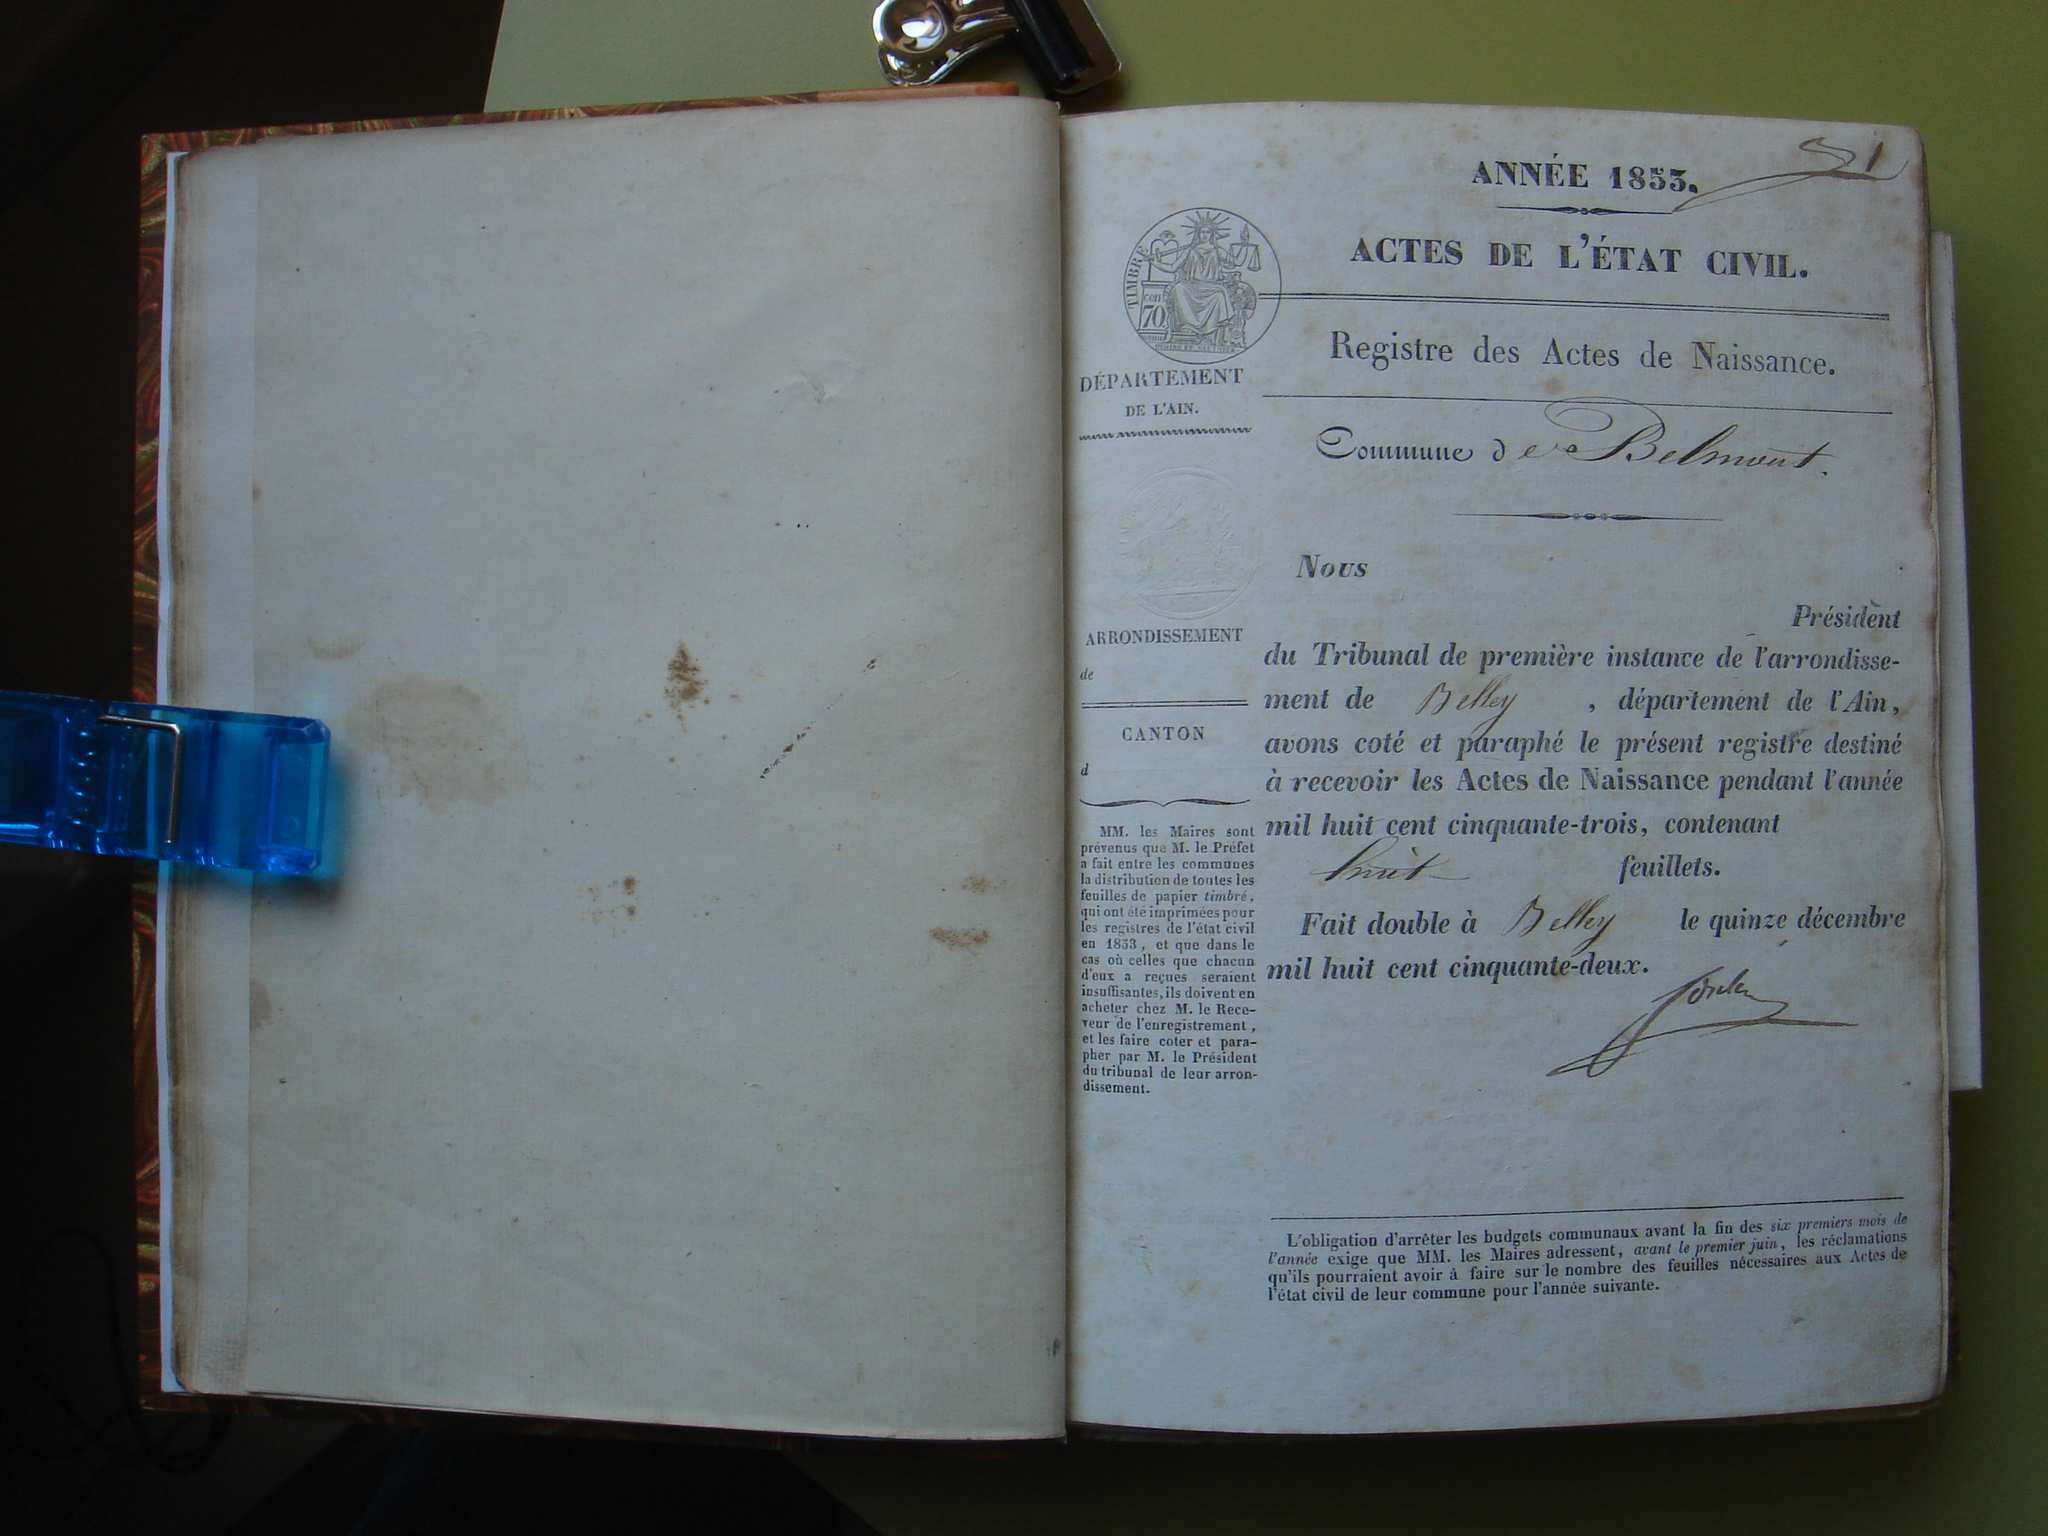 1
ANNÉE 1853.
ACTES DE L'ÉTAT CIVIL.
TIMBRE
cen
70
Registre des Actes de Naissance.
DÉPARTEMENT
DE L'AIN.
Commune de Belmont.
Nous
Président
du Tribunal de première instance de l'arrondisse-
ment de Belley , département de l'Ain,
avons coté et paraphé le présent registre destiné
à recevoir les Actes de Naissance pendant l'année
mil huit cent cinquante-trois, contenant
huit feuillets.
Fait double à Belley le quinze décembre
mil huit cent cinquante-deux.
ARRONDISSEMENT
de
CANTON
d
MM. les Maires sont
prévenus que M. le Préfet
a fait entre les communes
la distribution de toutes les
feuilles de papier timbré,
qui ont été imprimées pour
les registres de l'état civil
en 1853, et que dans le
cas où celles que chacun
d'eux a reçues seraient
insuffisantes, ils doivent en
acheter chez M. le Rece-
veur de l'enregistrement,
et les faire coter et para-
pher par M. le Président
du tribunal de leur arron-
dissement.
L'obligation d'arrêter les budgets communaux avant la fin des six premiers mois de
l'année exige que MM. les Maires adressent, avant le premier juin, les réclamations
qu'ils pourraient avoir à faire sur le nombre des feuilles nécessaires aux Actes de
l'état civil de leur commune pour l'année suivante.